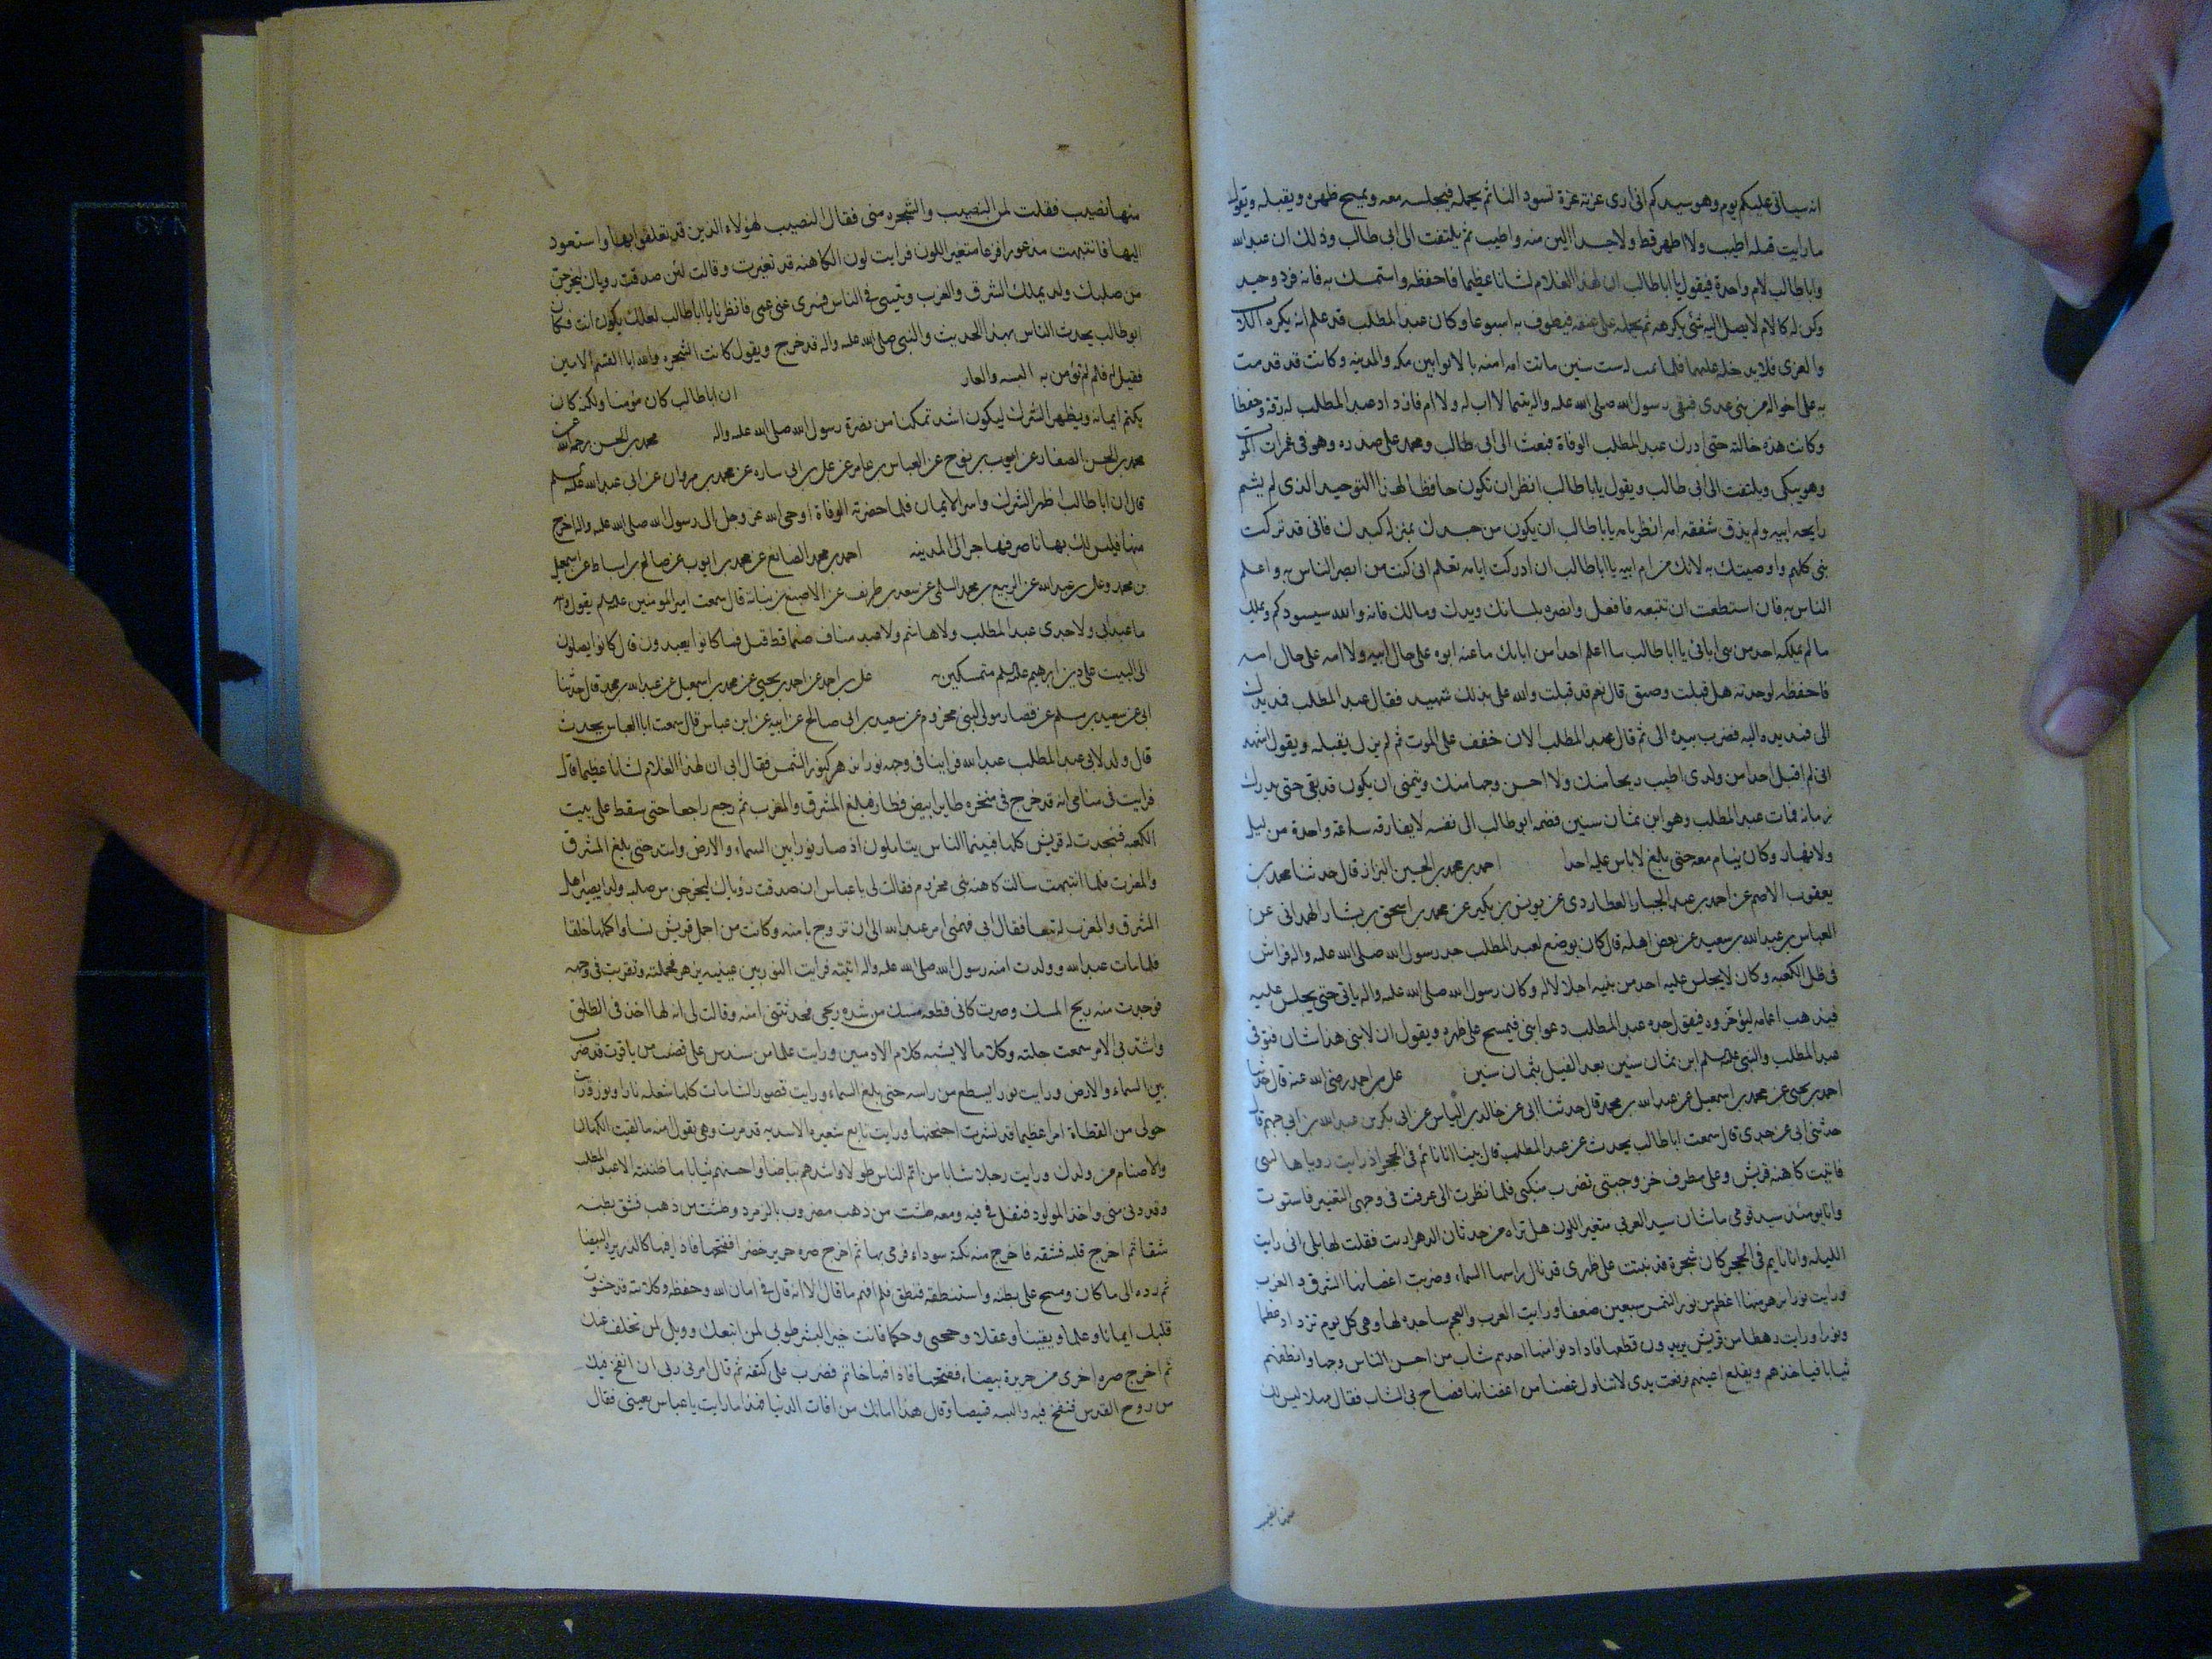 انه سياتى عليكم يوم وهو سيدكم انى ارى غرته غرة تسود الناس ثم يحمله فيجلسه معه ويمسح ظهره ويقبله ويقول
ما رايت قبله اطيب ولا اطهر قط ولا جسدا الين منه واطيب ثم يلتفت الى ابى طالب وذلك ان عبد الله
وابا طالب لام واحدة فيقول يا ابا طالب ان لهذا الغلام لشانا عظيما فاحفظه واستمسك به فانه فرد وحيد
وكن له كالام لا يصل اليه شئ يكرهه ثم يحمله على عنقه فيطوف به اسبوعا وكان عبد المطلب قد علم انه يكره اللات
والعزى فلا يدخله عليهما فلما تمت له ست سنين ماتت امه امنه بالابوا بين مكه والمدينه وكانت قد قدمت
به على اخواله من بنى عدى فبقى رسول الله صلى الله عليه واله يتيما لا اب له ولا ام فازداد عبد المطلب له رقة وحفظا
وكانت هذه حالته حتى ادرك عبد المطلب الوفاة فبعث الى ابى طالب ومحمد على صدره وهو فى غمرات الموت
وهو يبكى ويلتفت الى ابى طالب ويقول يا ابا طالب انظر ان تكون حافظا لهذا الوحيد الذى لم يشم
رايحه ابيه ولم يذق شفقه امه انظر يا با طالب ان يكون من جسدك بمنزلة كبدك فانى قد تركت
بنى كلهم واوصيتك به لانك من ام ابيه يا ابا طالب ان ادركت ايامه تعلم انى كنت من ابصر الناس به واعلم
الناس به فان استطعت ان تتبعه فافعل وانصره بلسانك ويدك ومالك فانه والله سيسودكم ويملك
ما لم يملكه احد من بنى ابائى يا ابا طالب ما اعلم احدا من ابائك مات عنه ابوه على حال ابيه ولا امه على حال امه
فاحفظه لوحدته هل قبلت وصيتى قال نعم قد قبلت والله على بذلك شهيد فقال عبد المطلب فمد يدك
الى فمد يده اليه فضرب بيده الى ثم قال عبد المطلب الان خفف على الموت ثم لم يزل يقبله ويقول اشهد
انى لم اقبل احدا من ولدى اطيب ريحا منك ولا احسن وجها منك ويتمنى ان يكون قد بقى حتى يدرك
زمانه فمات عبد المطلب وهو ابن ثمان سنين فضمه ابو طالب الى نفسه لا يفارقه ساعة واحدة من ليل
ولا نهار وكان ينام معه حتى بلغ لا ياس عليه احدا احمد بن محمد بن الحسين البزاز قال حدثنا محمد بن
يعقوب الاصم عن احمد بن عبد الجبار العطاردى عن يونس بن بكير عن محمد بن اسحق بن بشار المدنى عن
العباس بن عبد الله بن سعيد عن بعض اهله قال كان يوضع لعبد المطلب جد رسول الله صلى الله عليه واله فراش
فى ظل الكعبه وكان لا يجلس عليه احد من بنيه اجلالا له وكان رسول الله صلى الله عليه واله ياتى حتى يجلس عليه
فيذهب اعمامه ليؤخروه فيقول جده عبد المطلب دعوا ابنى فيمسح على ظهره ويقول ان لابنى هذا شان فتوفى
عبد المطلب والنبى عليه السلم ابن ثمان سنين بعد الفيل بثمان سنين على بن احمد رضى الله عنه قال حدثنا
احمد بن يحيى عن محمد بن اسمعيل عن عبد الله بن محمد قال حدثنا ابى عن خالد بن الياس عن ابى بكر بن عبد الله بن ابى جهم قال
حدثنى ابى عن جدى قال سمعت ابا طالب يحدث عن عبد المطلب قال بينا انا نائم فى الحجر اذ رايت رويا هالتنى
فاتيت كاهنه قريش وعلى مطرف خز وجمتى تضرب منكبى فلما نظرت الى عرفت فى وجهى التغيير فاستوت
وانا يومئذ سيد قومى ما شان سيد العرب متغير اللون هل رابه من حدثان الدهر ريب فقلت لها بلى انى رايت
الليله وانا نايم فى الحجر كان شجرة قد نبتت على ظهرى قد نال راسها السماء وضربت اغصانها الشرق والغرب
ورايت نورا يزهر منها اعظم من نور الشمس سبعين ضعفا ورايت العرب والعجم ساجده لها وهى كل يوم تزداد عظما
ونورا ورايت رهطا من قريش يريدون قطعها فاذا دنوا منها اخذهم شاب من احسن الناس وجها وانظفهم
ثيابا فياخذهم ويقلع اعينهم فرفعت يدى لاتناول غصنا من اغصانها فصاح بى الشاب فقال مهلا ليس لك
منها نصيب
منها نصيب فقلت لمن النصيب والشجره منى فقال النصيب لهؤلاء الذين قد تعلقوا بها واستعود
اليها فانتبهت مذعورا فزعا متغير اللون فرايت لون الكاهنه قد تغيرت وقالت لئن صدقت روياك ليخرجن
من صلبك ولد يملك الشرق والغرب ويتنبى فى الناس فسرى عنى غمى فانظر يا ابا طالب لعلك يكون انت فكان
ابو طالب يحدث الناس بهذا الحديث والنبى صلى الله عليه واله قد خرج ويقول كانت الشجره والله ابا القسم الامين
فقيل له فلم لم تؤمن به السبه والعار ان ابا طالب كان مؤمنا ولكنه كان
يكتم ايمانه ويظهر الشرك ليكون اشد تمكنا من نصرة رسول الله صلى الله عليه واله محمد بن الحسن رحمه الله عن
محمد بن الحسن الصفار عن ايوب بن نوح عن العباس بن عامر عن على بن ابى ساره عن محمد بن مروان عن ابى عبد الله عليه السلم
قال ان ابا طالب اظهر الشرك واسر الايمان فلما حضرته الوفاة اوحى الله عز وجل الى رسول الله صلى الله عليه واله اخرج
منها فليس لك بها ناصر فهاجر الى المدينه احمد بن محمد الصائغ عن محمد بن ايوب عن صالح بن اسباط عن اسمعيل
بن محمد وعلى بن عبد الله عن الربيع بن محمد السلمى عن سعد بن طريف عن الاصبغ بن نباته قال سمعت امير المومنين عليه السلم يقول والله
ما عبد ابى ولا جدى عبد المطلب ولا هاشم ولا عبد مناف صنما قط قيل فما كانوا يعبدون قال كانوا يصلون
الى البيت على دين ابرهيم عليه السلم متمسكين به على بن احمد عن احمد بن يحيى عن محمد بن اسمعيل عن عبد الله بن محمد قال حدثنا
ابى عن سعيد بن مسلم عن قصار مولى لبنى مخزوم عن سعيد بن ابى صالح عن ابيه عن ابن عباس قال سمعت ابا العباس يحدث
قال ولد لابى عبد المطلب عبد الله فراينا فى وجهه نورا يزهر كنور الشمس فقال ابى ان لهذا الغلام لشانا عظيما قال
فرايت فى منامى انه قد خرج فى منخره طاير ابيض فطار فبلغ المشرق والمغرب ثم رجع راجعا حتى سقط على بيت
الكعبه فسجدت له قريش كلها فبينما الناس يتاملون اذ صار نورا بين السماء والارض وامتد حتى بلغ المشرق
والمغرب فلما انتبهت سالت كاهنه بنى مخزوم فقالت لى يا عباس لئن صدقت روياك ليخرجن من صلبه ولد يصير اهل
المشرق والمغرب له تبعا فقال ابى فهمنى امر عبد الله الى ان تزوج بامنه وكانت من اجمل قريش نساوا كلها خلقا
فلما مات عبد الله وولدت امنه رسول الله صلى الله عليه واله اتيته فرايت النور بين عينيه يزهر فحملته وتفرست فى وجهه
فوجدت منه ريح المسك وصرت كانى قطعه مسك من شده ريحى فحدثتنى امنه وقالت لى انه لما اخذنى الطلق
واشتد بى الامر سمعت جلبه وكلاما لا يشبه كلام الادميين ورايت علما من سندس على قضيب من ياقوت قد ضرب
بين السماء والارض ورايت نورا يسطع من راسه حتى بلغ السماء ورايت قصور الشامات كلها شعله نارا ونورا ورايت
حولى من القطاة امرا عظيما قد نشرت اجنحتها ورايت تابع شعيره الاسديه قد مرت وهى تقول امنه ما لقيت الكهان
والاصنام من ولدك ورايت رجلا شابا من اتم الناس طولا واشدهم بياضا واحسنهم ثيابا ما ظننته الا عبد المطلب
وقد دنى منى واخذ المولود فتفل فى فيه ومعه طشت من ذهب مضروب بالزمرد ومشط من ذهب فشق بطنه
شقا ثم اخرج قلبه فشقه فاخرج منه نكتة سوداء فرمى بها ثم اخرج صره حرير خضرا ففتحها فاذا فيها كالذريره البيضا
ثم رده الى ما كان ومسح على بطنه واستنطقه فنطق فلم افهم ما قال الا انه قال فى امان الله وحفظه وكلائته قد حشوت
قلبك ايمانا وعلما ويقينا وعقلا وشجعى وحكما فانت خير البشر طوبى لمن اتبعك وويل لمن تخلف عنك
ثم اخرج صره اخرى من حريرة بيضاء ففتحها فاذا فيها خاتم فضرب على كتفه ثم قال امرنى ربى ان انفخ فيك
من روح القدس فنفخ فيه والبسه قميصا وقال هذا امانك من افات الدنيا فهذا ما رايت يا عباس بعينى فقال